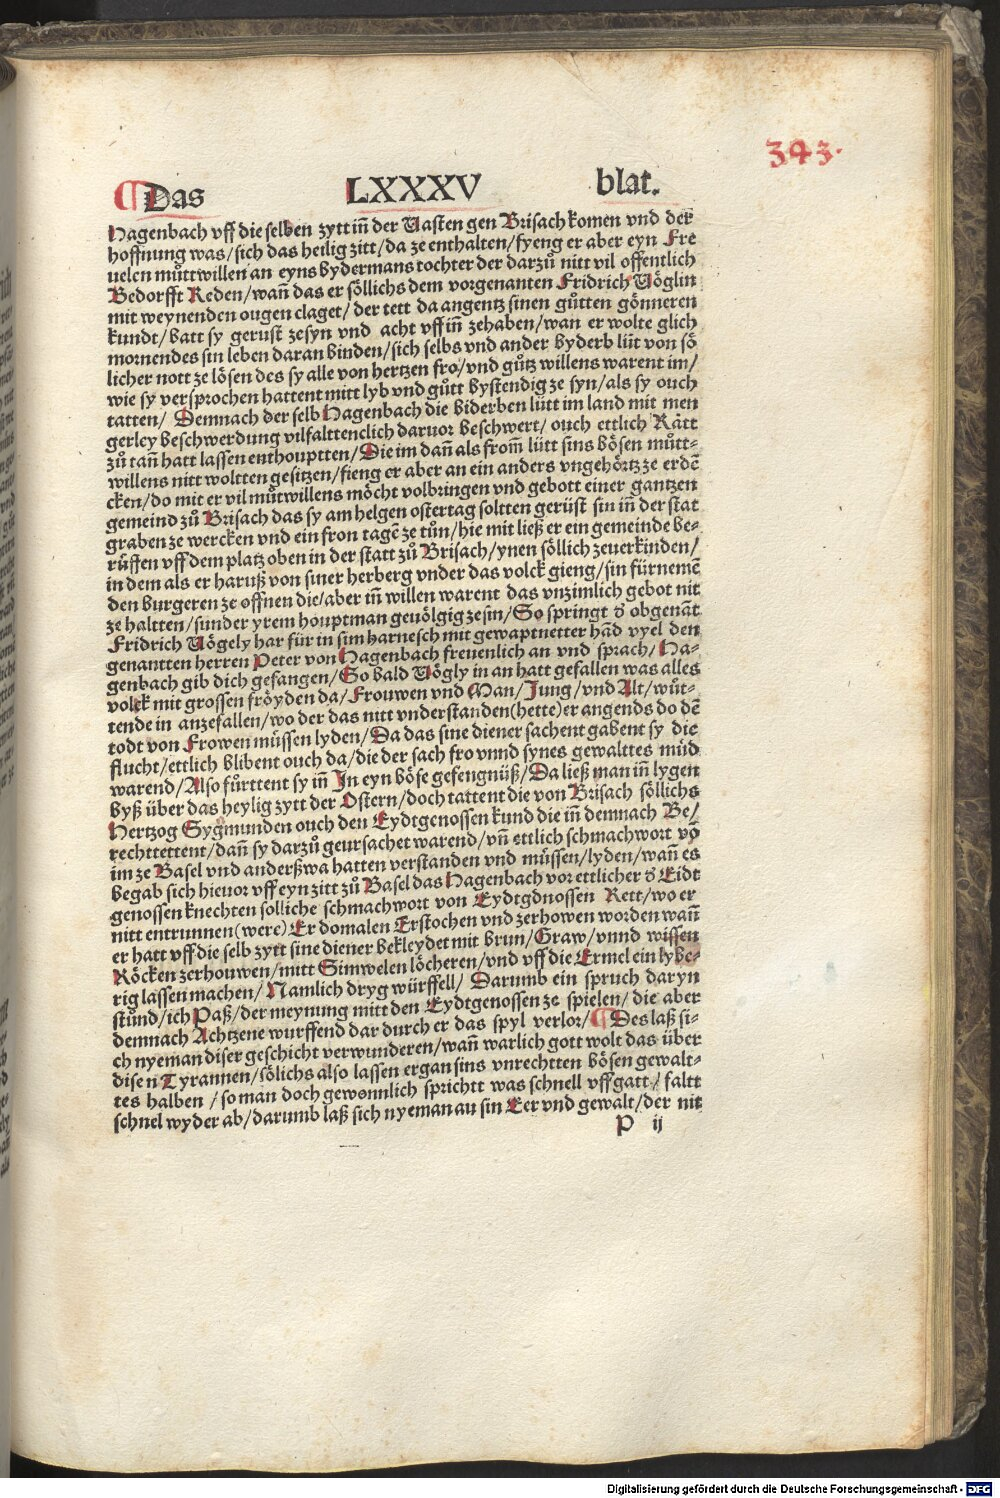 343.
¶ Das LXXXV blat.
Hagenbach vff die selben zytt in̄ der Uasten gen Brisach komen vnd der
hoffnung was/sich das heilig zitt/da ze enthalten/fyeng er aber eyn Fre
uelen můttwillen an eyns bydermans tochter der darzů nitt vil offentlich
Bedorfft Reden/wan̄ das er söllichs dem vorgenanten Fridrich Uöglin
mit weynenden ougen claget/der tett da angentz sinen gůtten gönneren
kundt/batt sy gerust zesyn vnd acht vff in̄ zehaben/wan er wolte glich
mornendes sin leben daran binden/sich selbs vnd ander byderb lüt von sö
licher nott ze lösen des sy alle von hertzen fro/vnd gůtz willens warent im/
wie sy versprochen hattent mitt lyb vnd gůtt bystendig ze syn/als sy ouch
tatten/ Demnach der selb Hagenbach die biderben lütt im land mit men
gerley beschwerdung vilfalttenclich daruor beschwert/ ouch ettlich Rätt
zů tan̄ hatt lassen enthouptten/Die im dan̄ als from̄ lütt sins bösen můtt⸗
willens nitt woltten gesitzen/fieng er aber an ein anders vngehörtz ze erdē
cken/do mit er vil můtwillens möcht volbringen vnd gebott einer gantzen
gemeind zů Brisach das sy am helgen ostertag soltten gerüst sin in̄ der stat
graben ze wercken vnd ein fron tagē ze tůn/hie mit ließ er ein gemeinde be⸗
růffen vff dem platz oben in der statt zů Brisach/ynen söllich zeuerkinden/
in dem als er haruß von siner herberg vnder das volck gieng/sin fürnemē
den burgeren ze offnen die/aber in̄ willen warent das vnzimlich gebot nit
ze haltten/sunder yrem houptman geuölgig ze sin/So springt d' obgenāt
Fridrich Uögely har für in sim harnesch mit gewaptnetter hād vyel den
genantten herren Peter von Hagenbach freuenlich an vnd sprach/Ha⸗
genbach gib dich gefangen/So bald Uögly in an hatt gefallen was alles
volck mit grossen fröyden da/Frouwen vnd Man/Jung/vnd Alt/wůt⸗
tende in anzefallen/wo der das nitt vnderstanden(hette)er angends do dē
todt von Frowen müssen lyden/Da das sine diener sachent gabent sy die
flucht/ettlich blibent ouch da/die der sach fro vnnd synes gewalttes můd
warend/Also fürttent sy in̄ In eyn böse gefengnüß/Da ließ man in̄ lygen
byß über das heylig zytt der Ostern/doch tattent die von Brisach söllichs
Hertzog Sygmunden ouch den Eydtgenossen kund die in̄ demnach Be/
rechttettent/dan̄ sy darzů geursachet warend/vn̄ ettlich schmachwort vō
im ze Basel vnd anderßwa hatten verstanden vnd müssen/lyden/wan̄ es
begab sich hieuor vff eyn zitt zů Basel das Hagenbach vor ettlicher d' Eidt
genossen knechten solliche schmachwort von Eydtgdnossen Rett/wo er
nitt entrunnen(were)Er domalen Erstochen vnd zerhowen worden wan̄
er hatt vff die selb zytt sine diener bekleydet mit brun/Graw/vnnd wissen
Röcken zerhouwen/mitt Simwelen löcheren/vnd vff die Ermel ein lybe⸗
rig lassen machen/Namlich dryg würffell/ Darumb ein spruch daryn
stůnd/ich Paß/der meynung mitt den Eydtgenossen ze spielen/ die aber
demnach Achtzene wurffend dar durch er das spyl verlor/¶ Des laß si⸗
ch nyeman diser geschicht verwunderen/wan̄ warlich gott wolt das über
disen Tyrannen/sölichs also lassen ergan sins vnrechtten bösen gewalt⸗
tes halben /so man doch gewonnlich sprichtt was schnell vff gatt/faltt
schnel wyder ab/darumb laß sich nyeman au sin Eer vnd gewalt/der nit
P ij
Digitalisierung gefördert durch die Deutsche Forschungsgemeinschaft - DFG